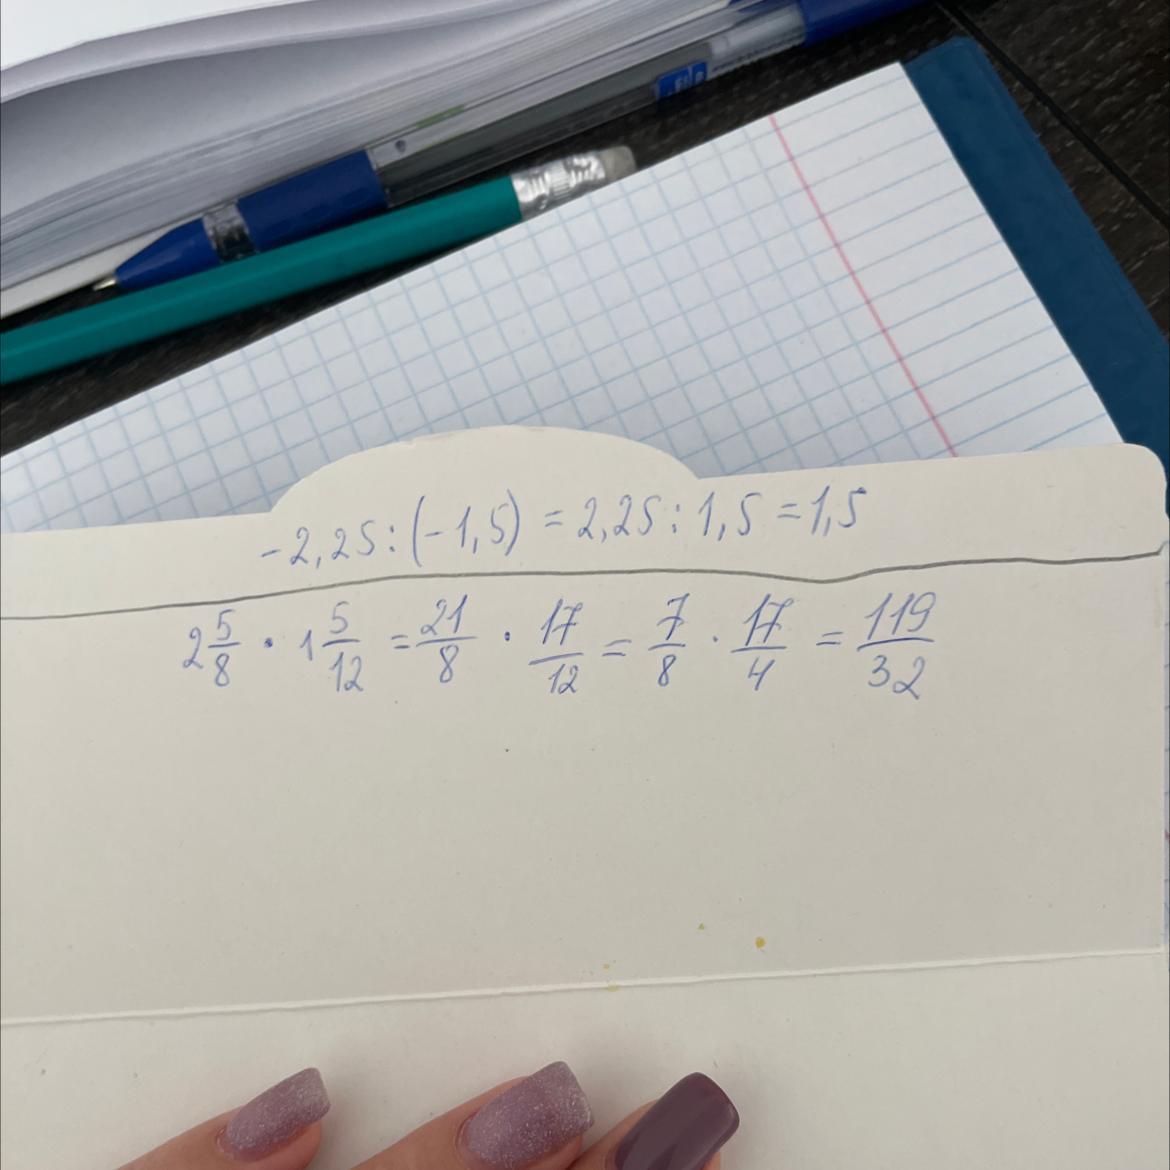 -2,25:(-1,5) = 2,25:1,5 = 1,5
2 5/8 · 1 5/12 = 21/8 · 17/12 = 7/8 · 17/4 = 119/32